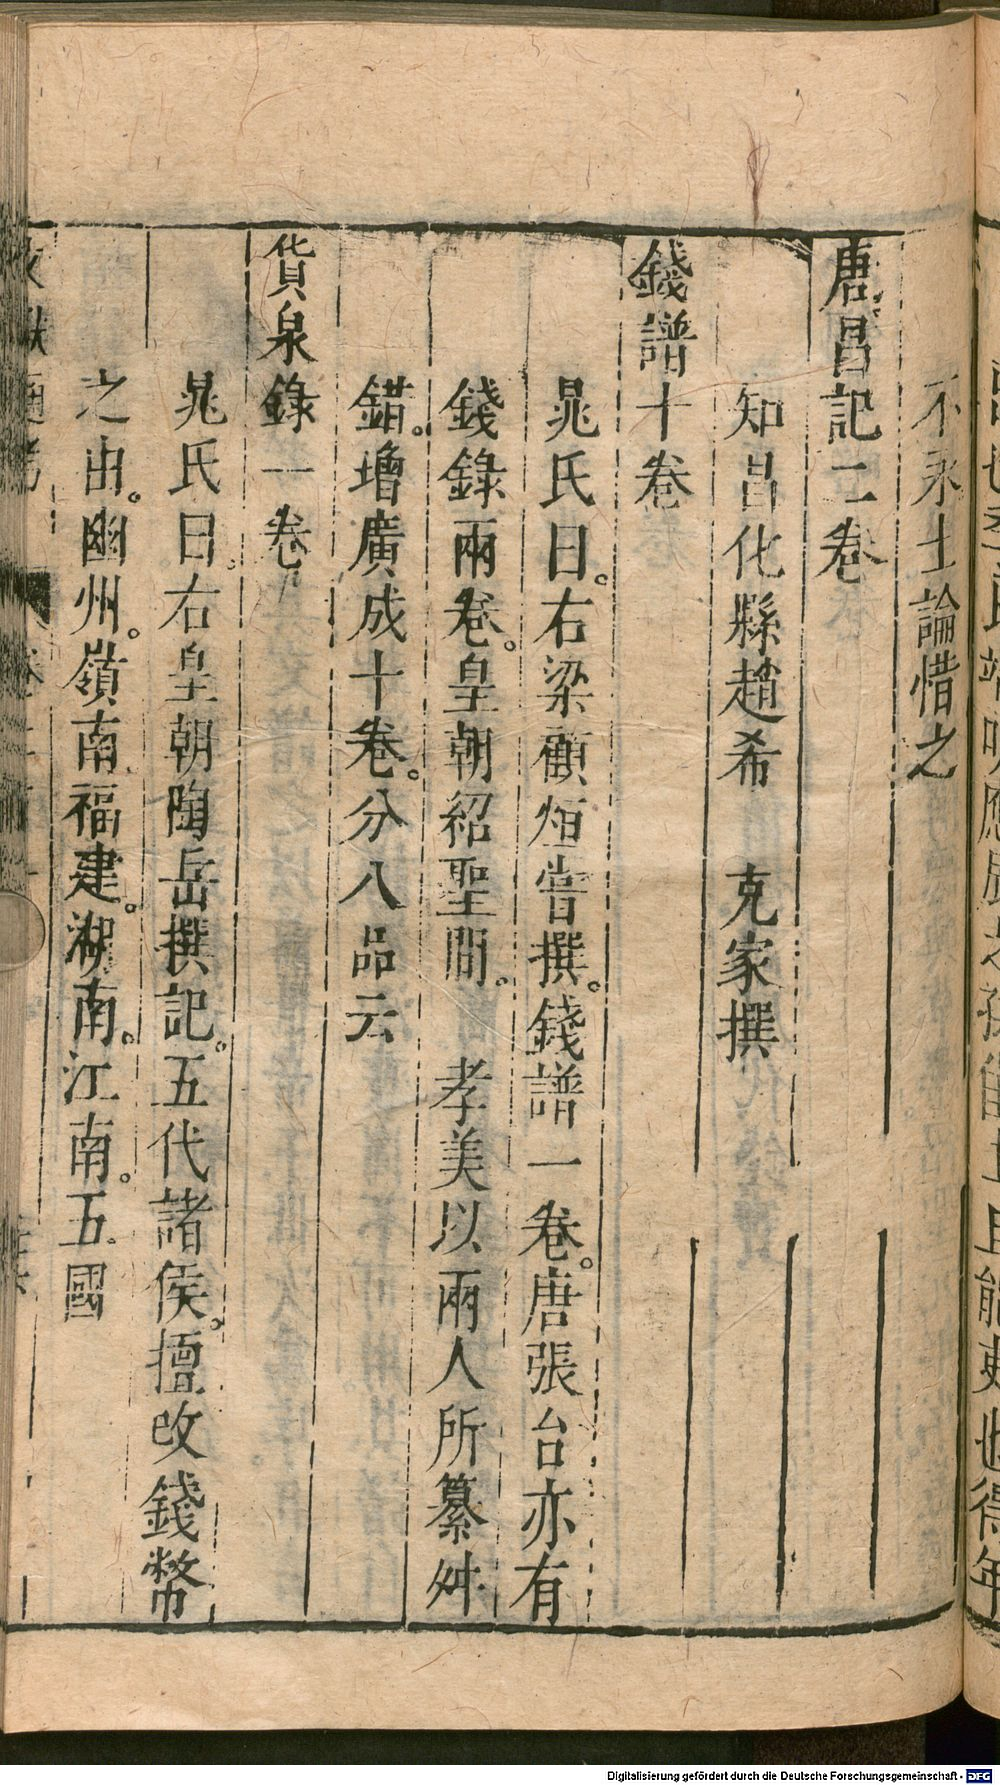 不永士論惜之
唐昌記二卷
知昌化縣趙希　克家撰
錢譜十卷
晁氏曰。右梁顧烜嘗撰。錢譜一卷。唐張台亦有
錢錄兩卷。皇朝紹聖間。　孝美以兩人所纂舛
錯。增廣成十卷。分八品云
貨泉錄一卷
晁氏曰。右皇朝陶岳撰記。五代諸侯。擅改錢幣
之由。幽州。嶺南。福建。湖南。江南。五國
Digitalisierung gefördert durch die Deutsche Forschungsgemeinschaft - DFG